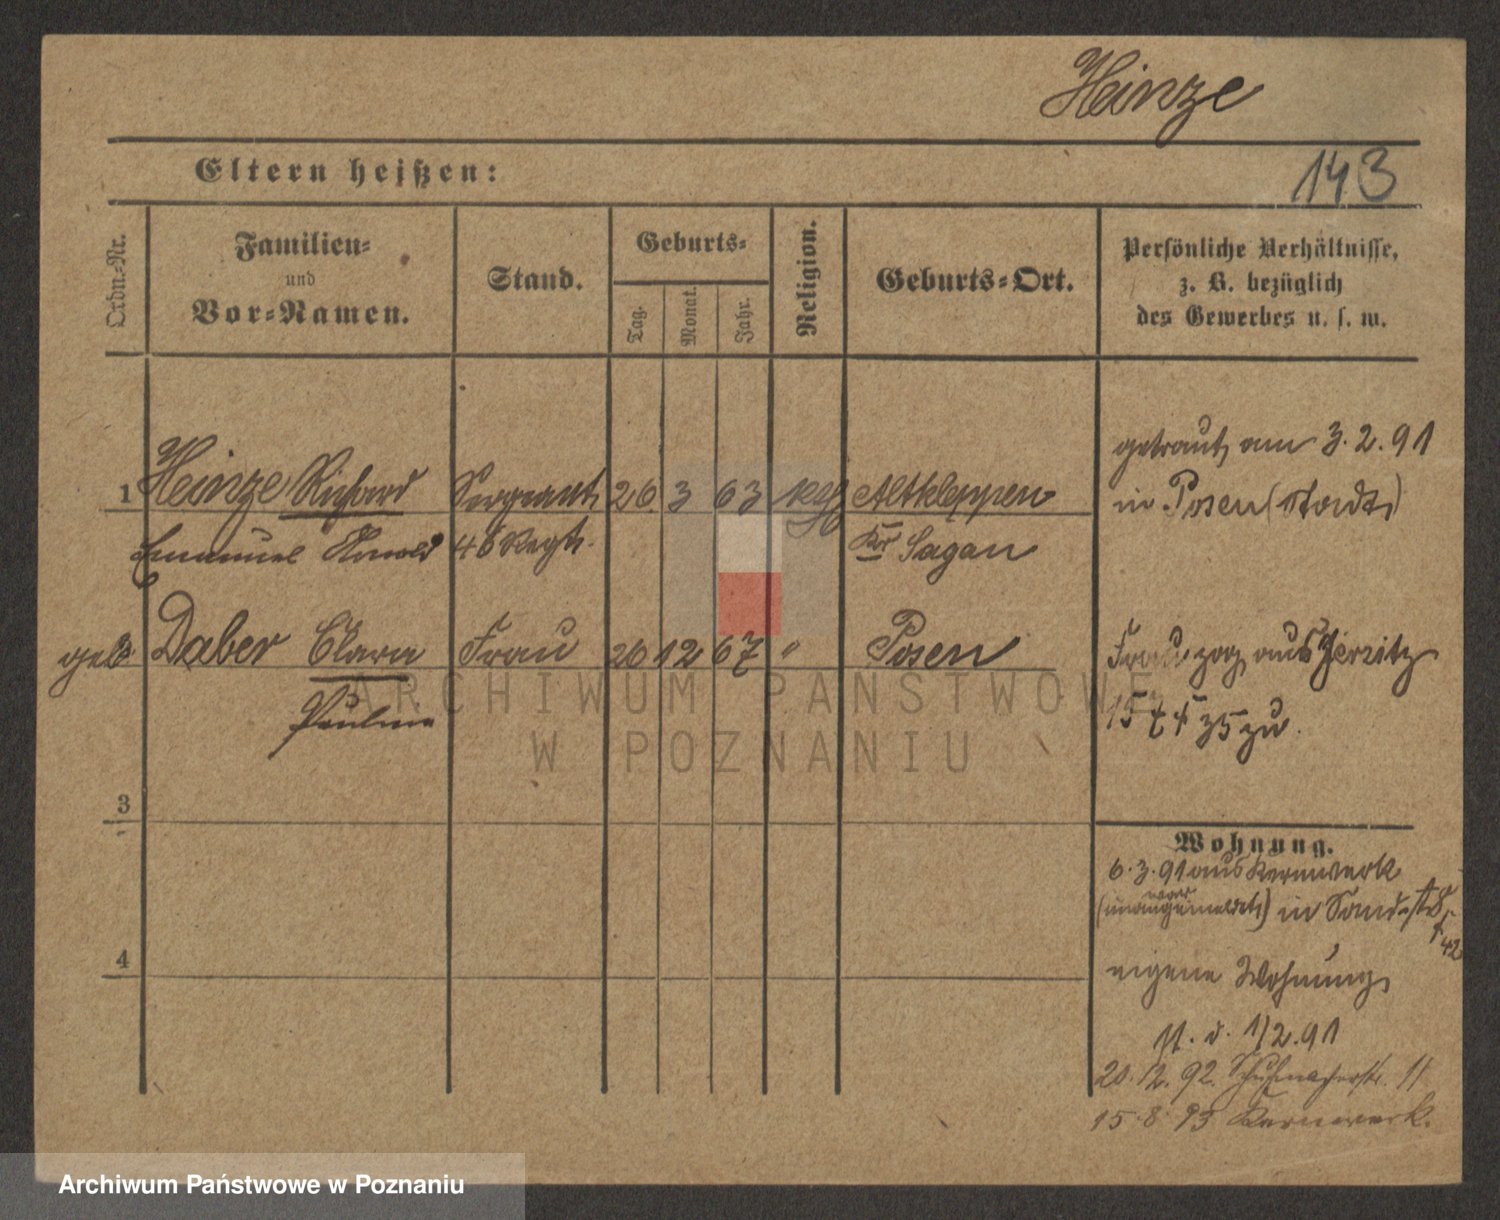 Heinze
143
Eltern heißen:
Ordn.-Nr.
Familien-
und
Vor-Namen.
Stand.
Geburts-
Tag.
Monat.
Jahr.
Religion.
Geburts-Ort.
Persönliche Verhältnisse,
z. B. bezüglich
des Gewerbes u. s. w.
1 Heinze Richard Sergeant 26 3 63 Altkleppen
Emanuel Arnold 46 Regts. Kr Sagan
getraut am 3.2.91
in Posen (Stadt)
geb. Daber Clara Frau 26 12 67 " Posen
Pauline
Frau zog aus Jerzitz
zu.
3
4
Wohnung.
6.3.91 aus Kernwerk
(war
unangemeldet) in Sandstr
42
eigene Wohnung
st. d. 1/2.91
20.12.92. Schuhmacherstr. 11
15.8.93 Kernwerk.
ARCHIWUM PAŃSTWOWE
W POZNANIU
Archiwum Państwowe w Poznaniu